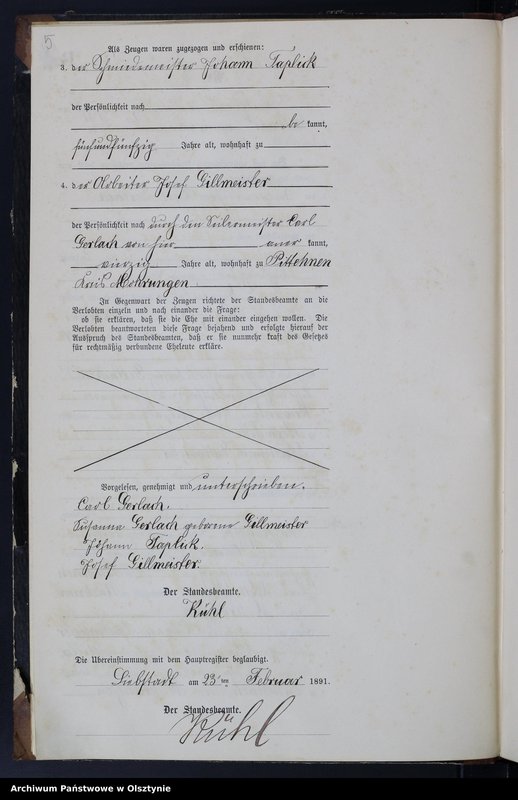 5
Als Zeugen waren zugezogen und erschienen:
3. der Schmiedemeister Johann Taplick
der Persönlichkeit nach
be kannt,
fünfundfünfzig Jahre alt, wohnhaft zu
4. der Arbeiter Josef Gillmeister
der Persönlichkeit nach durch den Carl
Gerlach von hier aner kannt,
vierzig Jahre alt, wohnhaft zu Pittehnen
Kreis Mohrungen.
In Gegenwart der Zeugen richtete der Standesbeamte an die
Verlobten einzeln und nach einander die Frage:
ob sie erklären, daß sie die Ehe mit einander eingehen wollen. Die
Verlobten beantworteten diese Frage bejahend und erfolgte hierauf der
Ausspruch des Standesbeamten, daß er sie nunmehr kraft des Gesetzes
für rechtmäßig verbundene Eheleute erkläre.
Vorgelesen, genehmigt und unterschrieben.
Carl Gerlach.
Susanna Gerlach geborene Gillmeister
Johann Taplick.
Josef Gillmeister.
Der Standesbeamte.
Kühl
Die Übereinstimmung mit dem Hauptregister beglaubigt.
Liebstadt am 23ten Februar 1891.
Der Standesbeamte.
Kühl
Archiwum Państwowe w Olsztynie